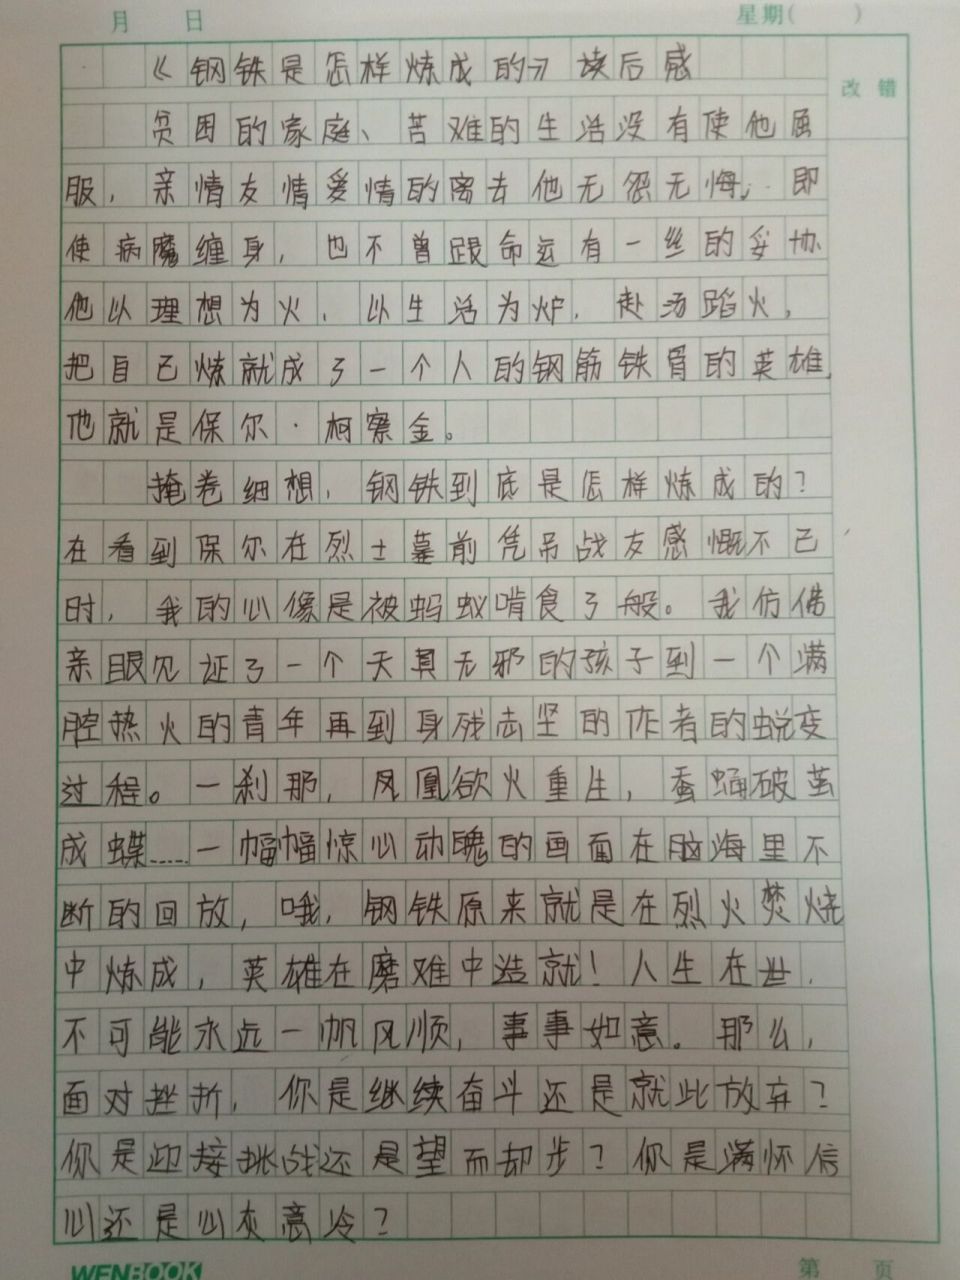 月 日 星期( )
改错
《钢铁是怎样炼成的》读后感
贫困的家庭、苦难的生活没有使他屈
服，亲情友情爱情的离去他无怨无悔，即
使病魔缠身，也不曾跟命运有一丝的妥协
他以理想为火，以生活为炉，赴汤蹈火，
把自己炼就成了一个人的钢筋铁骨的英雄，
他就是保尔·柯察金。
掩卷细想，钢铁到底是怎样炼成的？
在看到保尔在烈士墓前凭吊战友感慨不已
时，我的心像是被蚂蚁啃食了般。我仿佛
亲眼见证了一个天真无邪的孩子到一个满
腔热火的青年再到身残志坚的作者的蜕变
过程。一刹那，凤凰欲火重生，蚕蛹破茧
成蝶……一幅幅惊心动魄的画面在脑海里不
断的回放，哦，钢铁原来就是在烈火焚烧
中炼成，英雄在磨难中造就！人生在世，
不可能永远一帆风顺，事事如意。那么，
面对挫折，你是继续奋斗还是就此放弃？
你是迎接挑战还是望而却步？你是满怀信
心还是心灰意冷？
WENBOOK 第 页